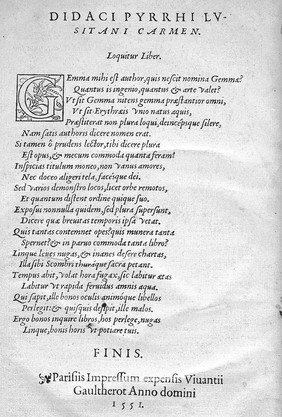 DIDACI PYRRHI LV-
SITANI CARMEN.
Loquitur Liber.
GEmma mihi est author, quis nescit nomina Gemmæ?
Quantus is ingenio, quantus & arte valet?
Vt sit Gemma nitens gemma præstantior omni,
Vt sit Erythræis vnio natus aquis,
Præstiterat non plura loqui, deincépsque silere,
Nam satis authoris dicere nomen erat.
Si tamen ô prudens lector, tibi dicere plura
Est opus, & mecum commoda quanta feram?
Inspicias titulum moneo, non vanus amores,
Nec doceo aligeri tela, facésque dei.
Sed varios demonstro locos, licet orbe remotos,
Et quantum distent ordine quique suo.
Exposui nonnulla quidem, sed plura supersunt,
Dicere quæ breuitas temporis ipsa vetat,
Quis tantas contemnet opes? quis munera tanta
Spernet? & in paruo commoda tanta libro?
Linque leues nugas, & inanes desere chartas,
Illa sibi Scombri thuráque sacra petant.
Tempus abit, volat hora fugax, sic labitur ætas
Labitur vt rapida feruidus amnis aqua.
Qui sapit, ille bonos oculis animóque libellos
Perlegit: & quisquis despit, ille malos.
Ergo bonos inquire libros, hos perlege, nugas
Linque, bonis horis vt potiare tuis.
FINIS.
Parisiis Impressum expensis Viuantii
Gaultherot Anno domini
1551.